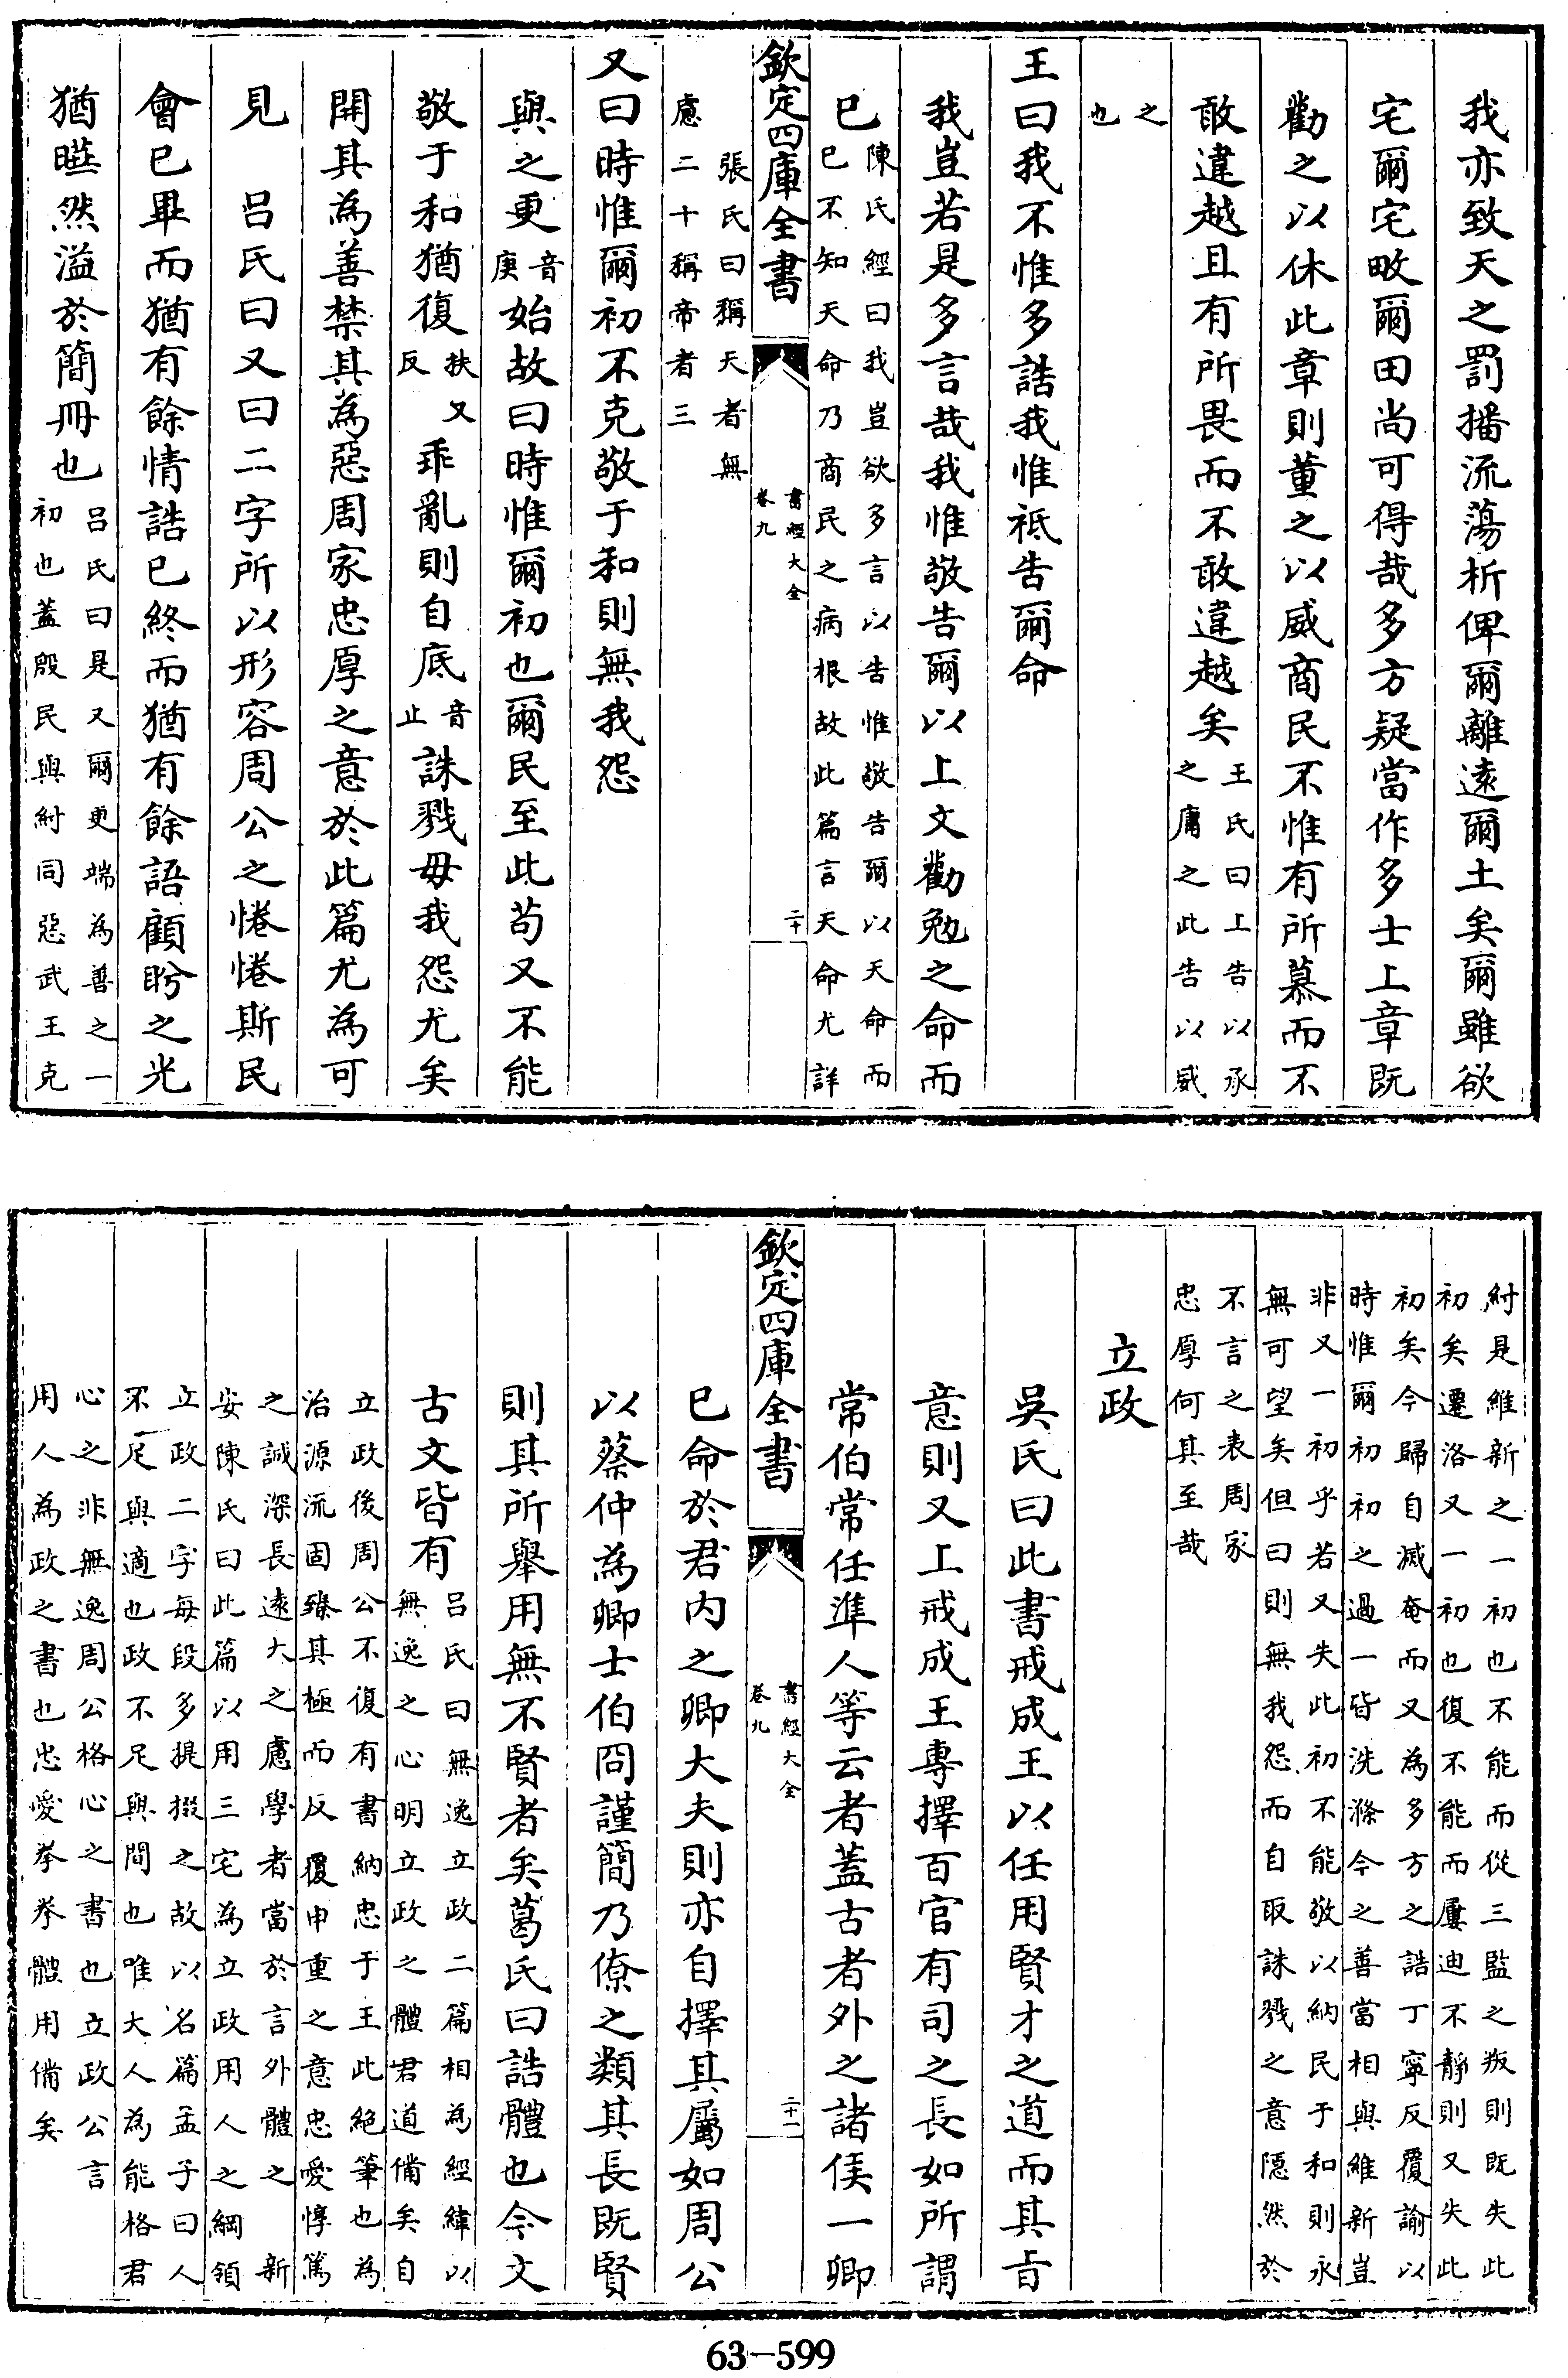 我亦致天之罰播流蕩析俾爾離遠爾土矣爾雖欲
宅爾宅畋爾田尚可得哉多方疑當作多士上章既
勸之以休此章則董之以威商民不惟有所慕而不
敢違越且有所畏而不敢違越矣王氏曰上告以承
之庸之此告以威
之
也
王曰我不惟多誥我惟祗告爾命
我豈若是多言哉我惟敬告爾以上文勸勉之命而
已陳氏經曰我豈欲多言以告惟敬告爾以天命而
已不知天命乃商民之病根故此篇言天命尤詳
欽定四庫全書
書經大全
卷九
二十
張氏曰稱天者無
慮二十稱帝者三
又曰時惟爾初不克敬于和則無我怨
與之更音
庚始故曰時惟爾初也爾民至此苟又不能
敬于和猶復扶又
反乖亂則自底音
止誅戮毋我怨尤矣
開其為善禁其為惡周家忠厚之意於此篇尤為可
見　呂氏曰又曰二字所以形容周公之惓惓斯民
會已畢而猶有餘情誥已終而猶有餘語顧盼之光
猶曄然溢於簡冊也呂氏曰是又爾更端為善之一
初也蓋殷民與紂同惡武王克
紂是維新之一初也不能而從三監之叛則既失此
初矣遷洛又一初也復不能而屢迪不靜則又失此
初矣今歸自滅奄而又為多方之誥丁寧反覆諭以
時惟爾初初之過一皆洗滌今之善當相與維新豈
非又一初乎若又失此初不能敬以納民于和則永
無可望矣但曰則無我怨而自取誅戮之意隱然於
不言之表周家
忠厚何其至哉
立政
吳氏曰此書戒成王以任用賢才之道而其旨
意則又上戒成王專擇百官有司之長如所謂
常伯常任準人等云者蓋古者外之諸侯一卿
欽定四庫全書
書經大全
卷九
二十一
已命於君內之卿大夫則亦自擇其屬如周公
以蔡仲為卿士伯冏謹簡乃僚之類其長既賢
則其所舉用無不賢者矣葛氏曰誥體也今文
古文皆有呂氏曰無逸立政二篇相為經緯以
無逸之心明立政之體君道備矣自
立政後周公不復有書納忠于王此絕筆也為
治源流固臻其極而反覆申重之意忠愛惇篤
之誠深長遠大之慮學者當於言外體之　新
安陳氏曰此篇以用三宅為立政用人之綱領
立政二字每段多提掇之故以名篇孟子曰人
不足與適也政不足與間也唯大人為能格君
心之非無逸周公格心之書也立政公言
用人為政之書也忠愛拳拳體用備矣
63-599